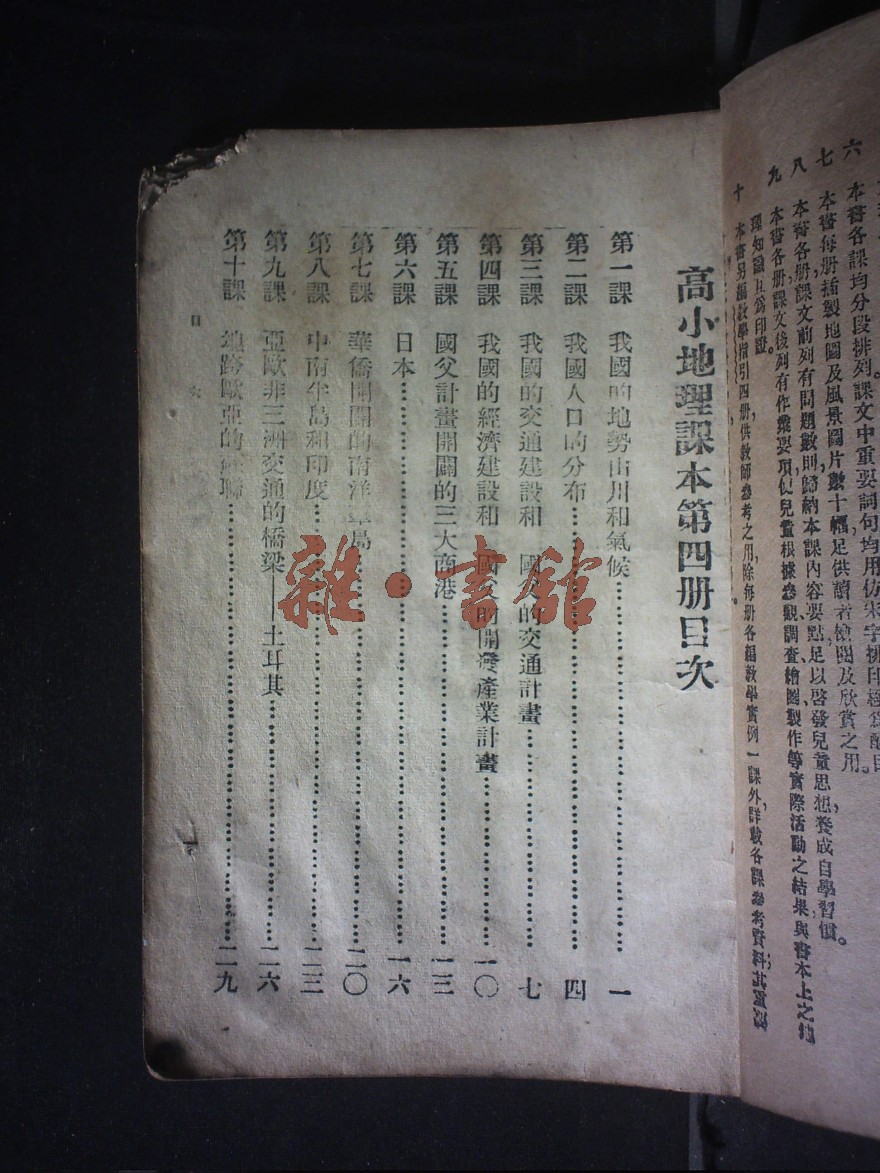 六 本書各課均分段排列。課文中重要詞句均用仿宋字排印
七 本書每册插製地圖及風景圖片數十幅足供讀者檢閱及欣賞之用。
八 本書各册課文前列有問題數則歸納本課內容要點足以啓發兒童思想養成自學習慣。
九 本書各册課文後列有作業要項促兒童根據參觀調查繪圖製作等實際活動之結果與書本上之地
理知識互爲印證。
十 本書另編教學指引四册供教師參考之用，除每册各編教學實例一課外，詳載各課參考資料
高小地理課本第四册目次
第一課 我國的地勢山川和氣候 一
第二課 我國人口的分布 四
第三課 我國的交通建設和 國父的交通計畫 七
第四課 我國的經濟建設和 國父的開發產業計畫 一〇
第五課 國父計畫開闢的三大商港 一三
第六課 日本 一六
第七課 華僑開闢的南洋羣島 二〇
第八課 中南半島和印度 二三
第九課 亞歐非三洲交通的橋梁——土耳其 二六
第十課 地跨歐亞的蘇聯 二九
目 次
雜·書館